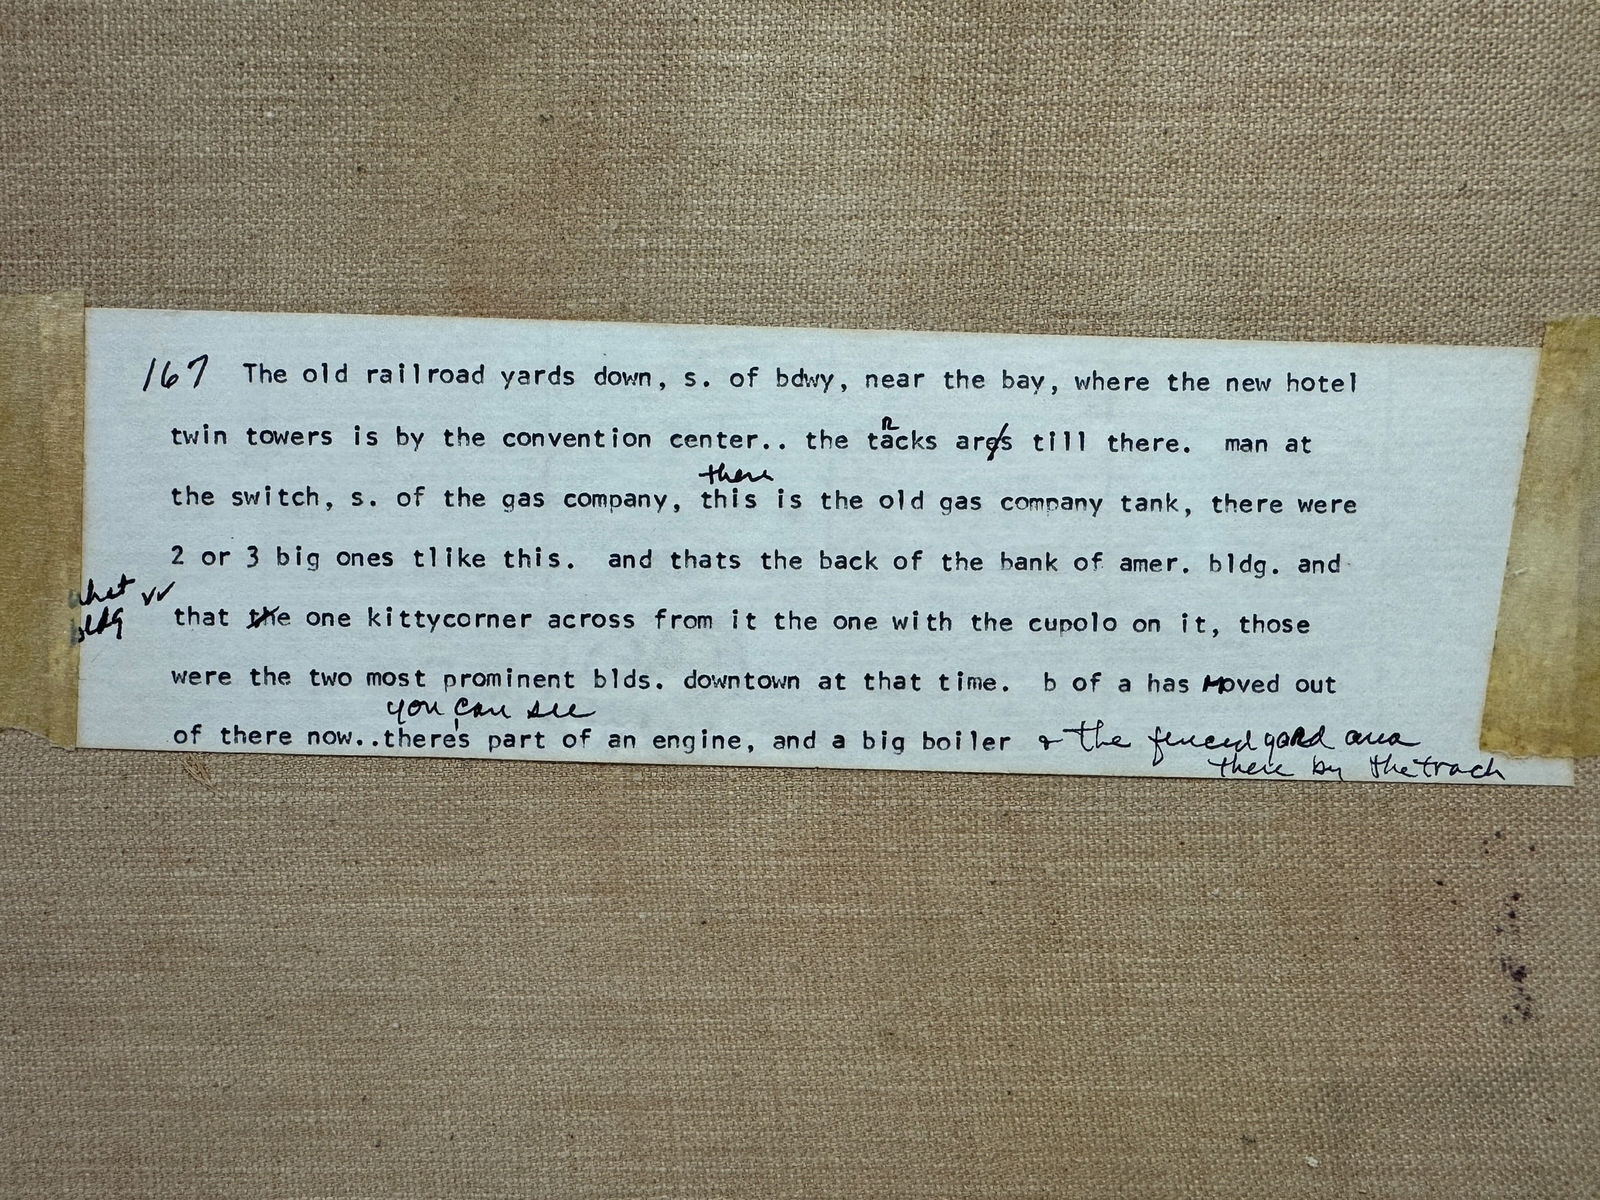 167 The old railroad yards down, s. of bdwy, near the bay, where the new hotel
twin towers is by the convention center.. the tacks ares till there. man at
R
there
the switch, s. of the gas company, this is the old gas company tank, there were
2 or 3 big ones tlike this. and thats the back of the bank of amer. bldg. and
what
bldg
that the one kittycorner across from it the one with the cupolo on it, those
were the two most prominent blds. downtown at that time. b of a has moved out
you can see
of there now..there's part of an engine, and a big boiler & the fenced yard area
there by the track